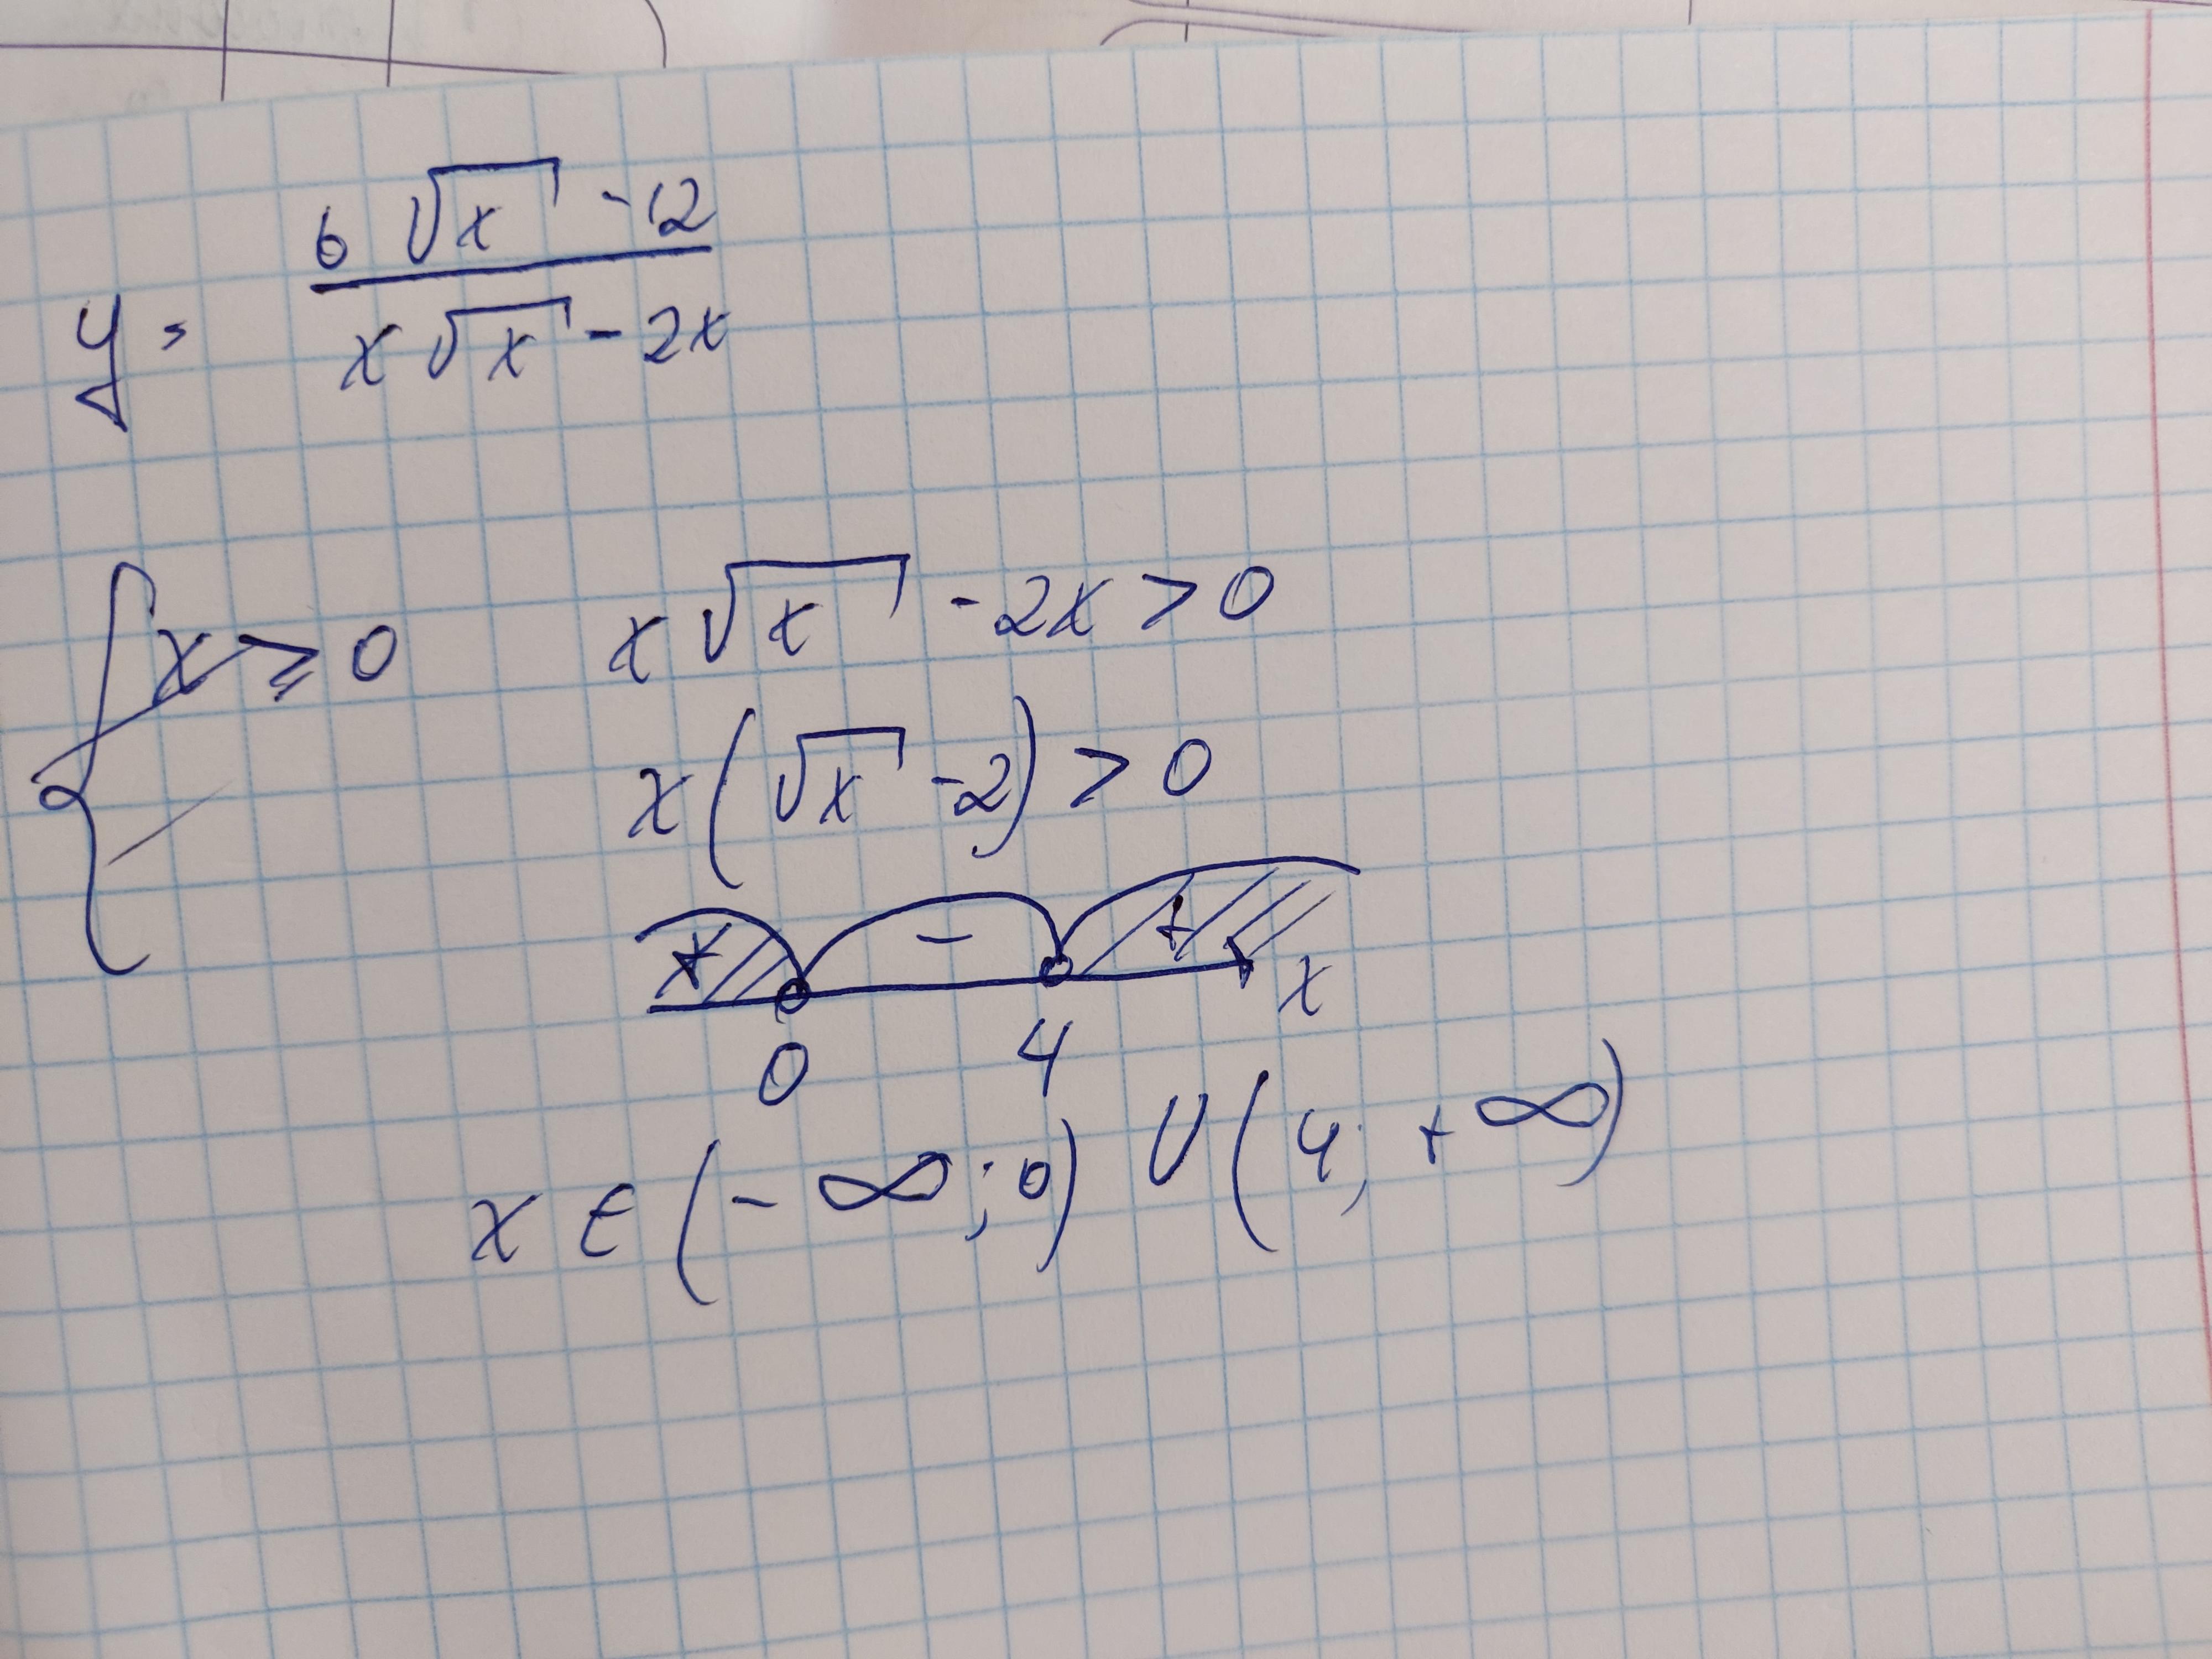 y = (6√x - 12) / (x√x - 2x)
{ x ≥ 0
x√x - 2x > 0
x(√x - 2) > 0
+ - + x
0 4
x ∈ (-∞; 0) ∪ (4; +∞)